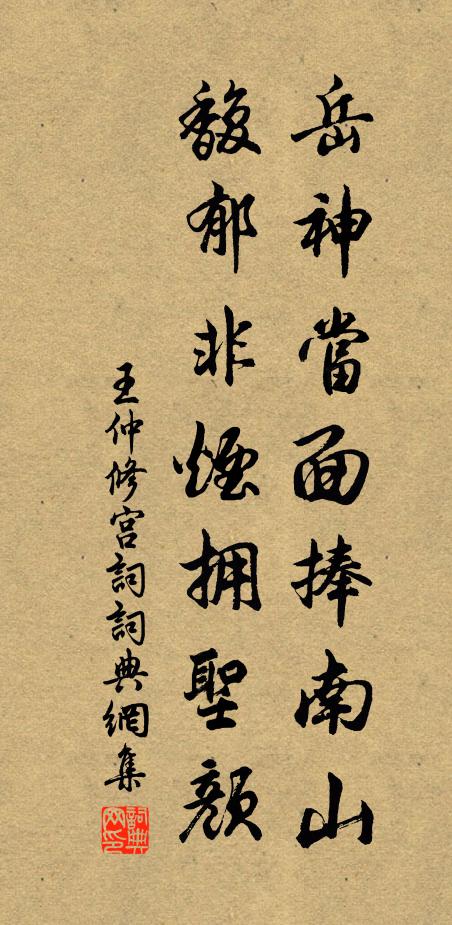 岳神當面捧南山
馥郁非煙拥聖顏
王仲修宫詞詞典網集
詞典网印